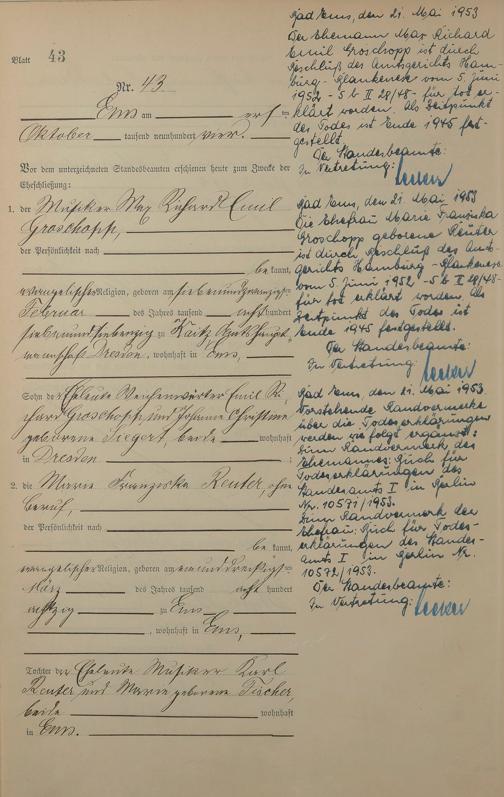 Blatt 43
Nr. 43
Ems am erſten
Oktober tauſend neunhundert vier.
Vor dem unterzeichneten Standesbeamten erſchienen heute zum Zwecke der
Eheſchließung:
1. der Musiker Max Richard Emil
Groschopp,
der Perſönlichkeit nach
be kannt,
evangelischer Religion, geboren am siebenundzwanzigsten
Februar des Jahres tauſend acht hundert
siebenundsiebenzig zu Kaitz, Amtshaupt-
mannschaft Dresden, wohnhaft in Ems,
Sohn der Eheleute Weichenwärter Emil Ri-
chard Groschopp und Johanne Christine
geborene Siegert, beide wohnhaft
in Dresden ;
2. die Marie Franziska Reuter, ohne
Beruf,
der Perſönlichkeit nach
be kannt,
evangelischer Religion, geboren am einunddreißigsten
März des Jahres tauſend acht hundert
achtzig zu Ems
, wohnhaft in Ems,
Tochter der Eheleute Musiker Karl
Reuter und Marie geborene Fischer,
beide wohnhaft
in Ems.
Bad Ems, den 21. Mai 1953
Der Ehemann Max Richard
Emil Groschopp ist durch
Beschluß des Amtsgerichts Ham-
burg-Blankenese vom 5. Juni
1952 - 5 b II 28/48 - für tot er-
klärt worden. Als Zeitpunkt
des Todes ist Ende 1945 fest-
gestellt.
Der Standesbeamte:
In Vertretung:
Bad Ems, den 21. Mai 1953
Die Ehefrau Marie Franziska
Groschopp geborene Reuter
ist durch Beschluß des Amts-
gerichts Hamburg-Blankenese
vom 5. Juni 1952 - 5 b II 29/48-
für tot erklärt worden. Als
Zeitpunkt des Todes ist
Ende 1945 festgestellt.
Der Standesbeamte:
In Vertretung:
Bad Ems, den 21. Mai 1953
Vorstehende Randvermerke
über die Todeserklärungen
werden wie folgt ergänzt:
Zum Randvermerk des
Ehemannes: Buch für
Todeserklärungen des
Standesamts I in Berlin
Nr. 10571/1953.
Zum Randvermerk der
Ehefrau: Buch für Todes-
erklärungen des Standes-
amts I in Berlin Nr.
10572/1953.
Der Standesbeamte:
In Vertretung: